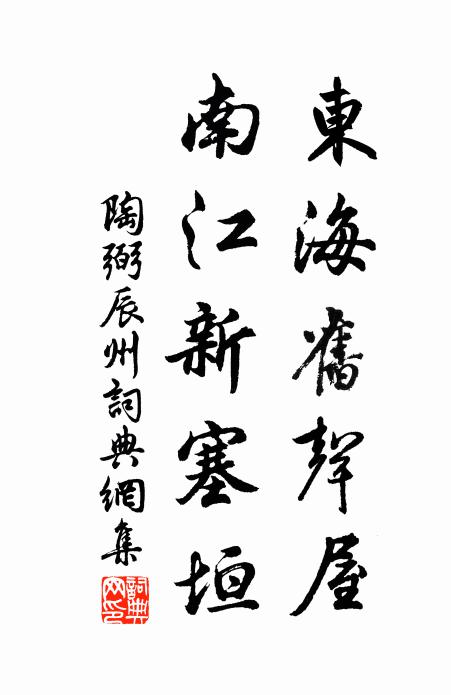 東海舊聲屋
南江新塞垣
陶弼辰州詞典網集
詞典網印